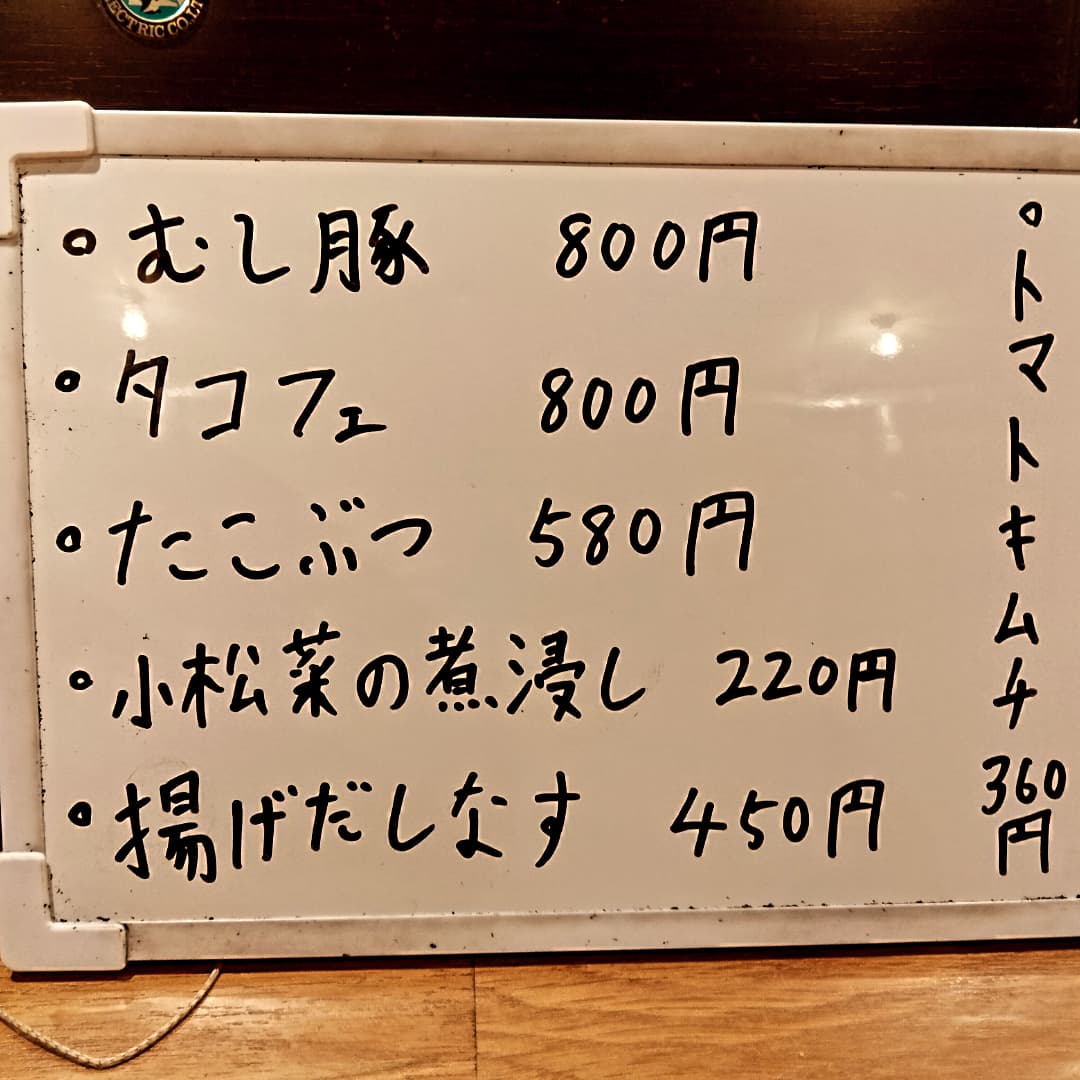 ECTRIC CO.LT
○むし豚 800円
○タコフェ 800円
○たこぶつ 580円
○小松菜の煮浸し 220円
○揚げだしなす 450円
○トマトキムチ360円